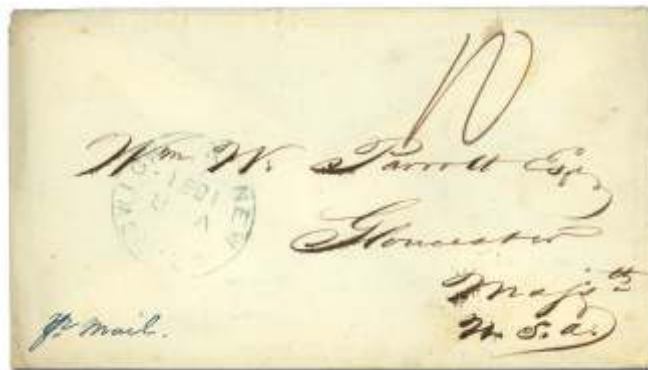 10
Wm W. Parrott Esq
Gloucester
Massts
U.S.A.
pr Mail.
NEW